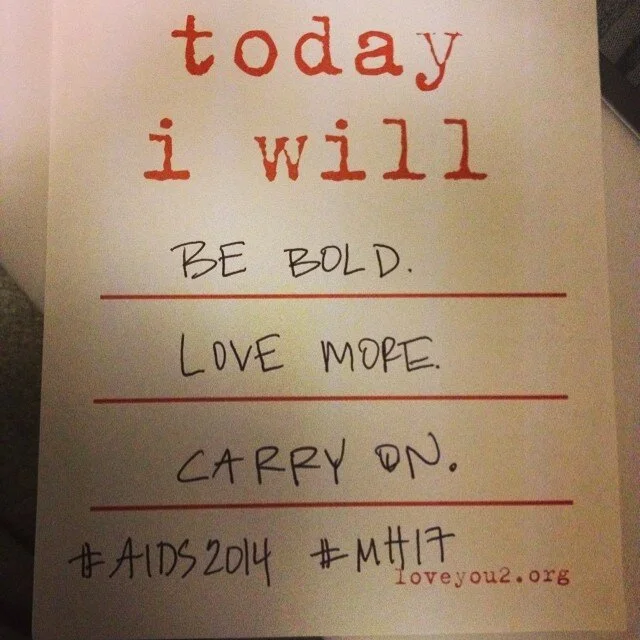 today
i will
BE BOLD.
LOVE MORE.
CARRY ON.
#AIDS2014 #MH17
loveyou2.org